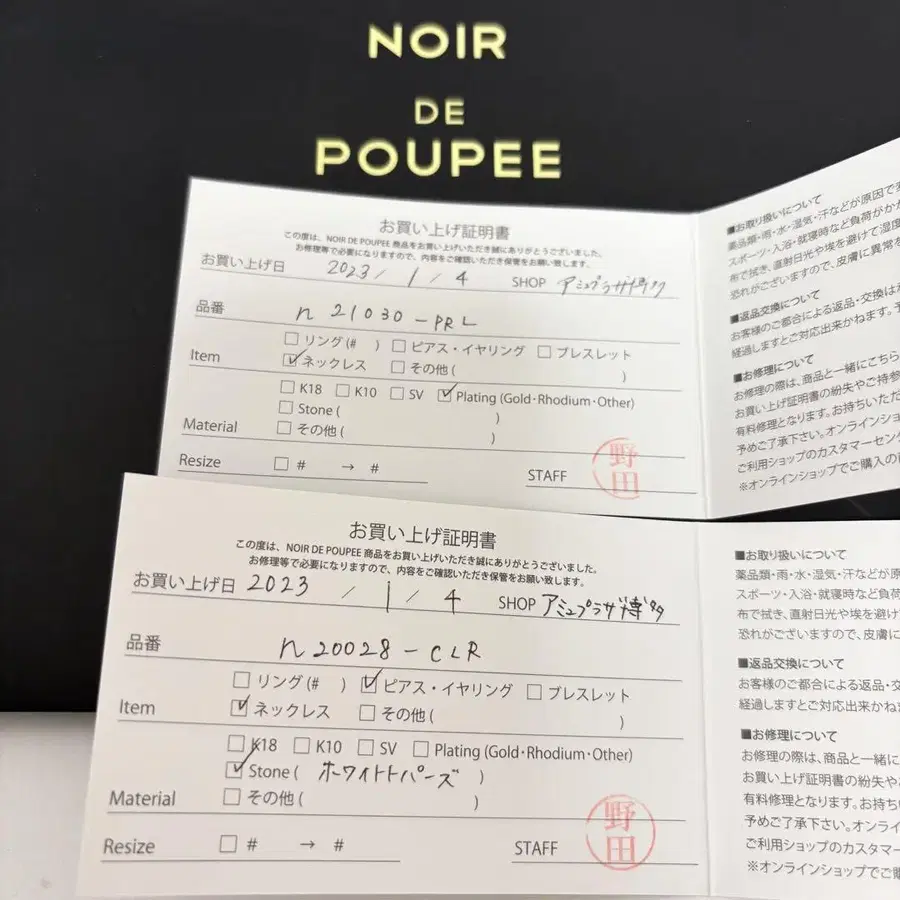 NOIR
DE
POUPEE
お買い上げ証明書
この度は、NOIR DE POUPEE 商品をお買い上げいただき誠にありがとうございました。
お修理等で必要になりますので、内容をご確認いただき保管をお願い致します。
お買い上げ日 2023 / 1 / 4 SHOP アミュプラザ博多
品番 n 21030-PRL
□リング(# ) □ピアス・イヤリング □ブレスレット
Item ☑ネックレス □その他( )
□K18 □K10 □SV ☑Plating (Gold・Rhodium・Other)
□Stone ( )
Material □その他 ( )
Resize □ # → # STAFF 野田
■お取り扱いについて
薬品類・雨・水・湿気・汗などが原因で
スポーツ・入浴・就寝時など負荷がか
布で拭き、直射日光や埃を避けて湿度
恐れがございますので、皮膚に異常を
■返品交換について
お客様のご都合による返品・交換は
経過しますとご対応出来かねます。
■お修理について
お修理の際は、商品と一緒にこちら
お買い上げ証明書の紛失やご持参
有料修理となります。お持ちいただ
予めご了承下さい。オンラインショッ
ご利用ショップのカスタマーセン
※オンラインショップでご購入の
お買い上げ証明書
この度は、NOIR DE POUPEE 商品をお買い上げいただき誠にありがとうございました。
お修理等で必要になりますので、内容をご確認いただき保管をお願い致します。
お買い上げ日 2023 / 1 / 4 SHOP アミュプラザ博多
品番 n 20028-CLR
□リング(# ) ☑ピアス・イヤリング □ブレスレット
Item ☑ネックレス □その他( )
□K18 □K10 □SV □Plating (Gold・Rhodium・Other)
☑Stone ( ホワイトトパーズ )
Material □その他 ( )
Resize □ # → # STAFF 野田
■お取り扱いについて
薬品類・雨・水・湿気・汗などが原
スポーツ・入浴・就寝時など負荷
布で拭き、直射日光や埃を避け
恐れがございますので、皮膚に
■返品交換について
お客様のご都合による返品・交
経過しますとご対応出来かね
■お修理について
お修理の際は、商品と一緒に
お買い上げ証明書の紛失や
有料修理となります。お持ち
予めご了承下さい。オンライ
ご利用ショップのカスタマー
※オンラインショップでご